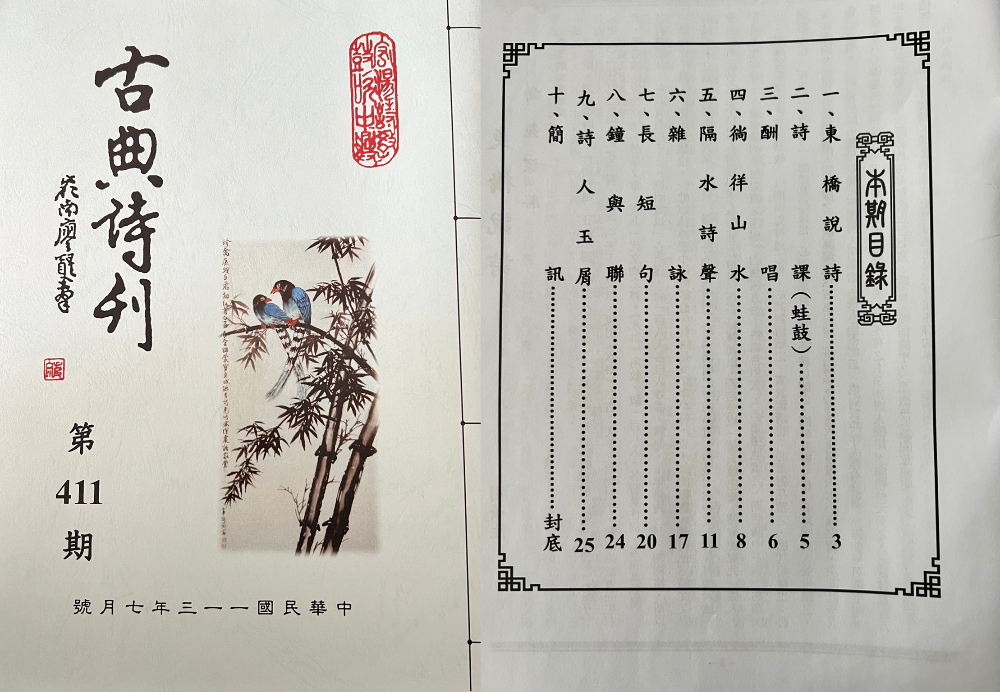 古典詩刊
嶺南廖從雲
第
411
期
中華民國一一三年七月號
本期目錄
一、東橋說詩……3
二、詩課(蛙鼓)……5
三、酬唱……6
四、徜徉山水……8
五、隔水詩聲……11
六、雜詠……17
七、長短句……20
八、鐘與聯……24
九、詩人玉屑……25
十、簡訊……封底